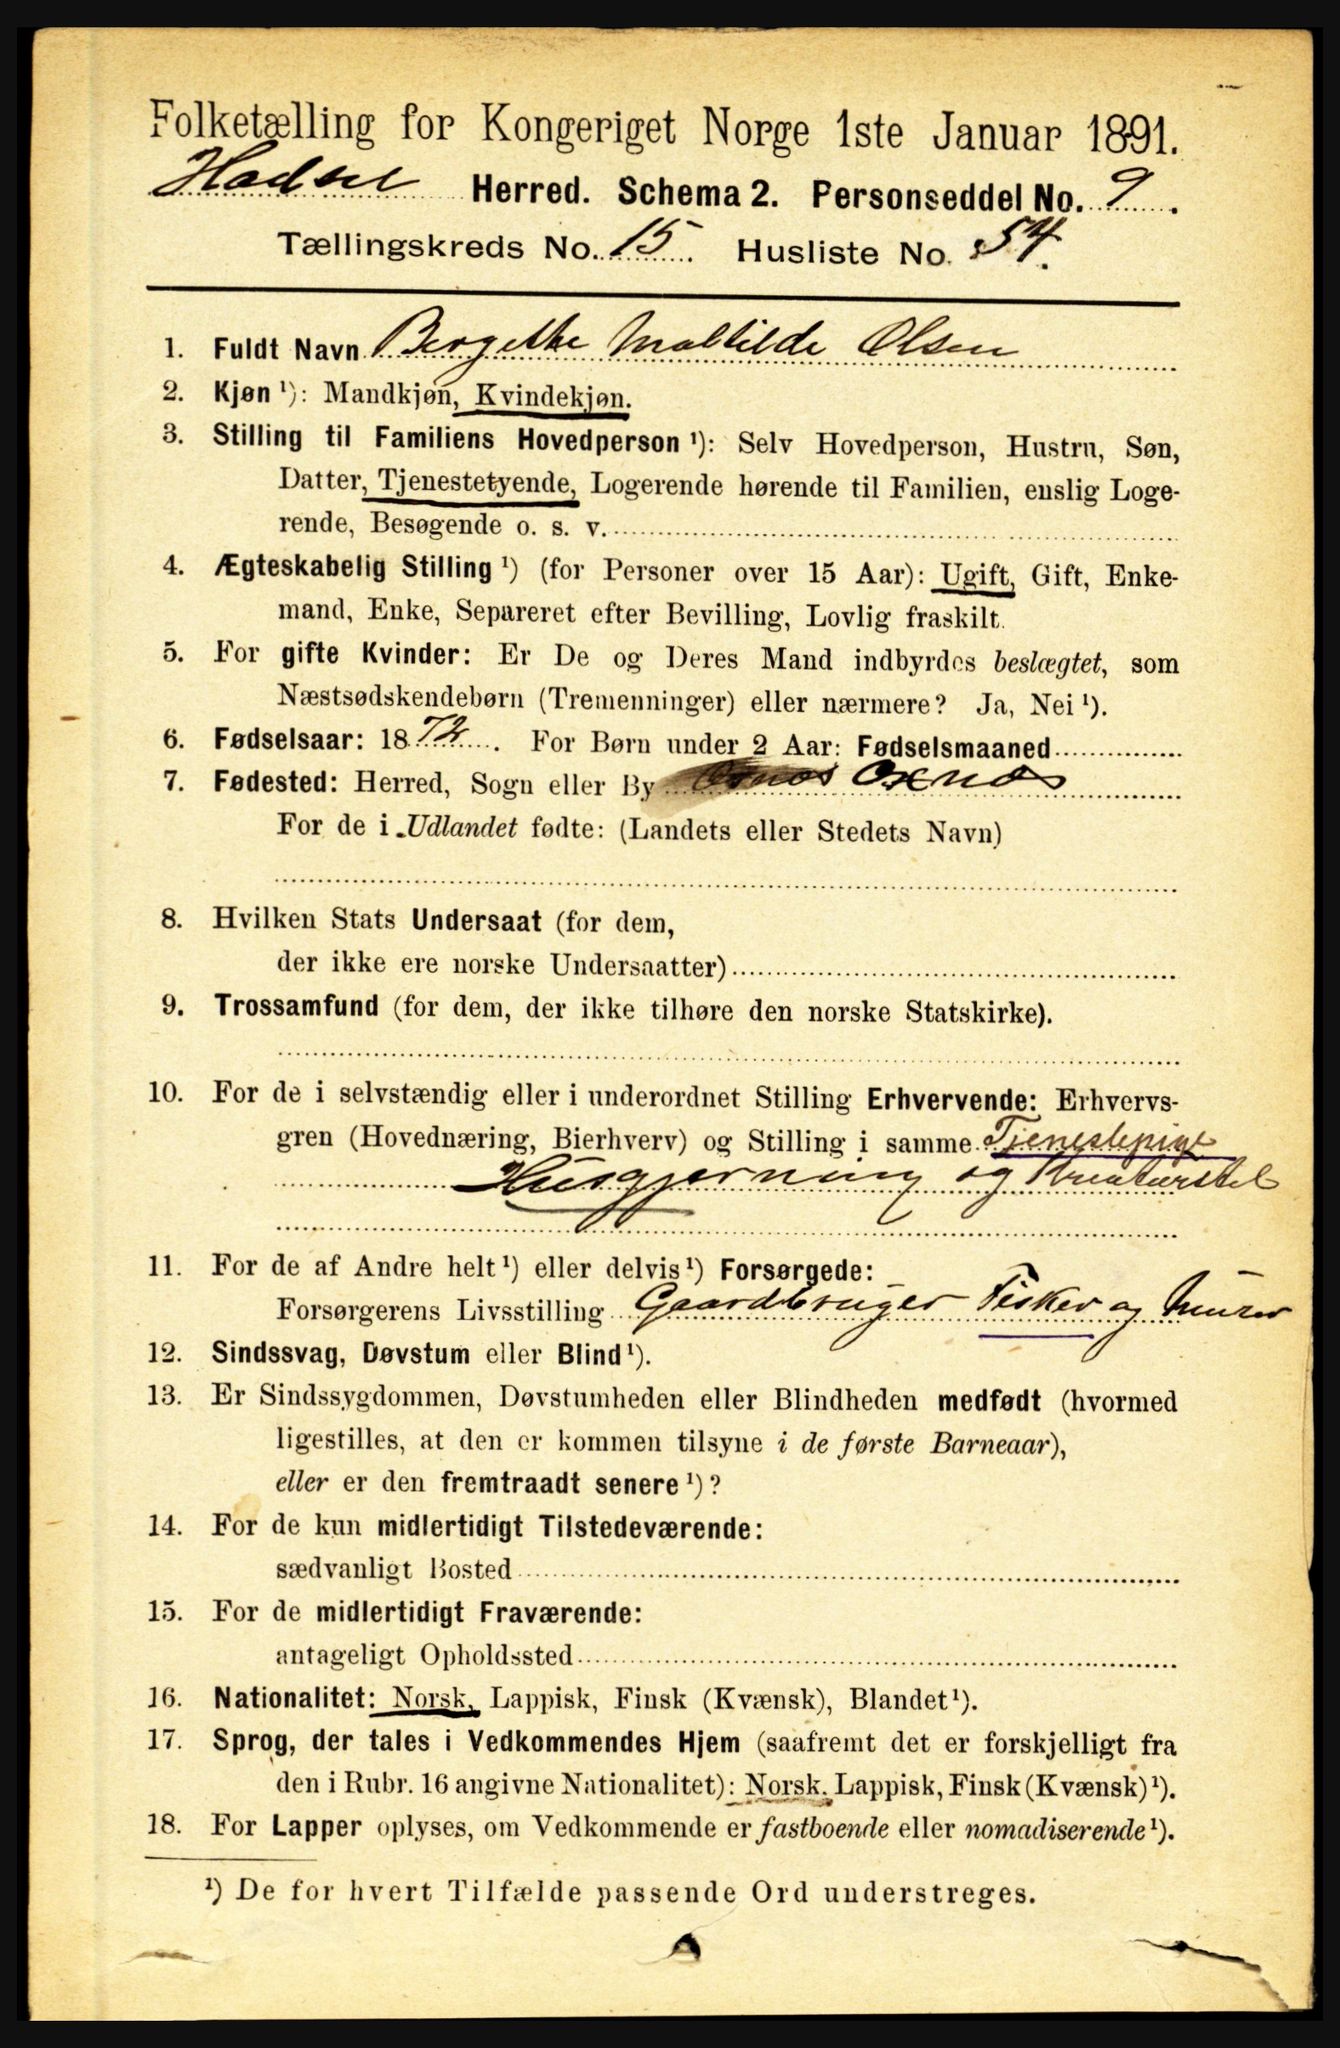 Folketælling for Kongeriget Norge 1ste Januar 1891.
Hadsel Herred. Schema 2. Personseddel No. 9.
Tællingskreds No. 15. Husliste No. 54.
1. Fuldt Navn Bergethe Mathilde Olsen
2. Kjøn ¹): Mandkjøn, Kvindekjøn.
3. Stilling til Familiens Hovedperson ¹): Selv Hovedperson, Hustru, Søn,
Datter, Tjenestetyende, Logerende hørende til Familien, enslig Loge-
rende, Besøgende o. s. v.
4. Ægteskabelig Stilling ¹) (for Personer over 15 Aar): Ugift, Gift, Enke-
mand, Enke, Separeret efter Bevilling, Lovlig fraskilt.
5. For gifte Kvinder: Er De og Deres Mand indbyrdes beslægtet, som
Næstsødskendebørn (Tremenninger) eller nærmere? Ja, Nei ¹).
6. Fødselsaar: 1872. For Børn under 2 Aar: Fødselsmaaned
7. Fødested: Herred, Sogn eller By Øxnæs
For de i Udlandet fødte: (Landets eller Stedets Navn)
8. Hvilken Stats Undersaat (for dem,
der ikke ere norske Undersaatter)
9. Trossamfund (for dem, der ikke tilhøre den norske Statskirke).
10. For de i selvstændig eller i underordnet Stilling Erhvervende: Erhvervs-
gren (Hovednæring, Bierhverv) og Stilling i samme Tjenestepige
Husgjerning og Kreaturstel
11. For de af Andre helt ¹) eller delvis ¹) Forsørgede:
Forsørgerens Livsstilling Gaardbruger Fisker og Murer
12. Sindssvag, Døvstum eller Blind ¹).
13. Er Sindssygdommen, Døvstumheden eller Blindheden medfødt (hvormed
ligestilles, at den er kommen tilsyne i de første Barneaar),
eller er den fremtraadt senere ¹)?
14. For de kun midlertidigt Tilstedeværende:
sædvanligt Bosted
15. For de midlertidigt Fraværende:
antageligt Opholdssted
16. Nationalitet: Norsk, Lappisk, Finsk (Kvænsk), Blandet ¹).
17. Sprog, der tales i Vedkommendes Hjem (saafremt det er forskjelligt fra
den i Rubr. 16 angivne Nationalitet): Norsk. Lappisk, Finsk (Kvænsk) ¹).
18. For Lapper oplyses, om Vedkommende er fastboende eller nomadiserende ¹).
¹) De for hvert Tilfælde passende Ord understreges.